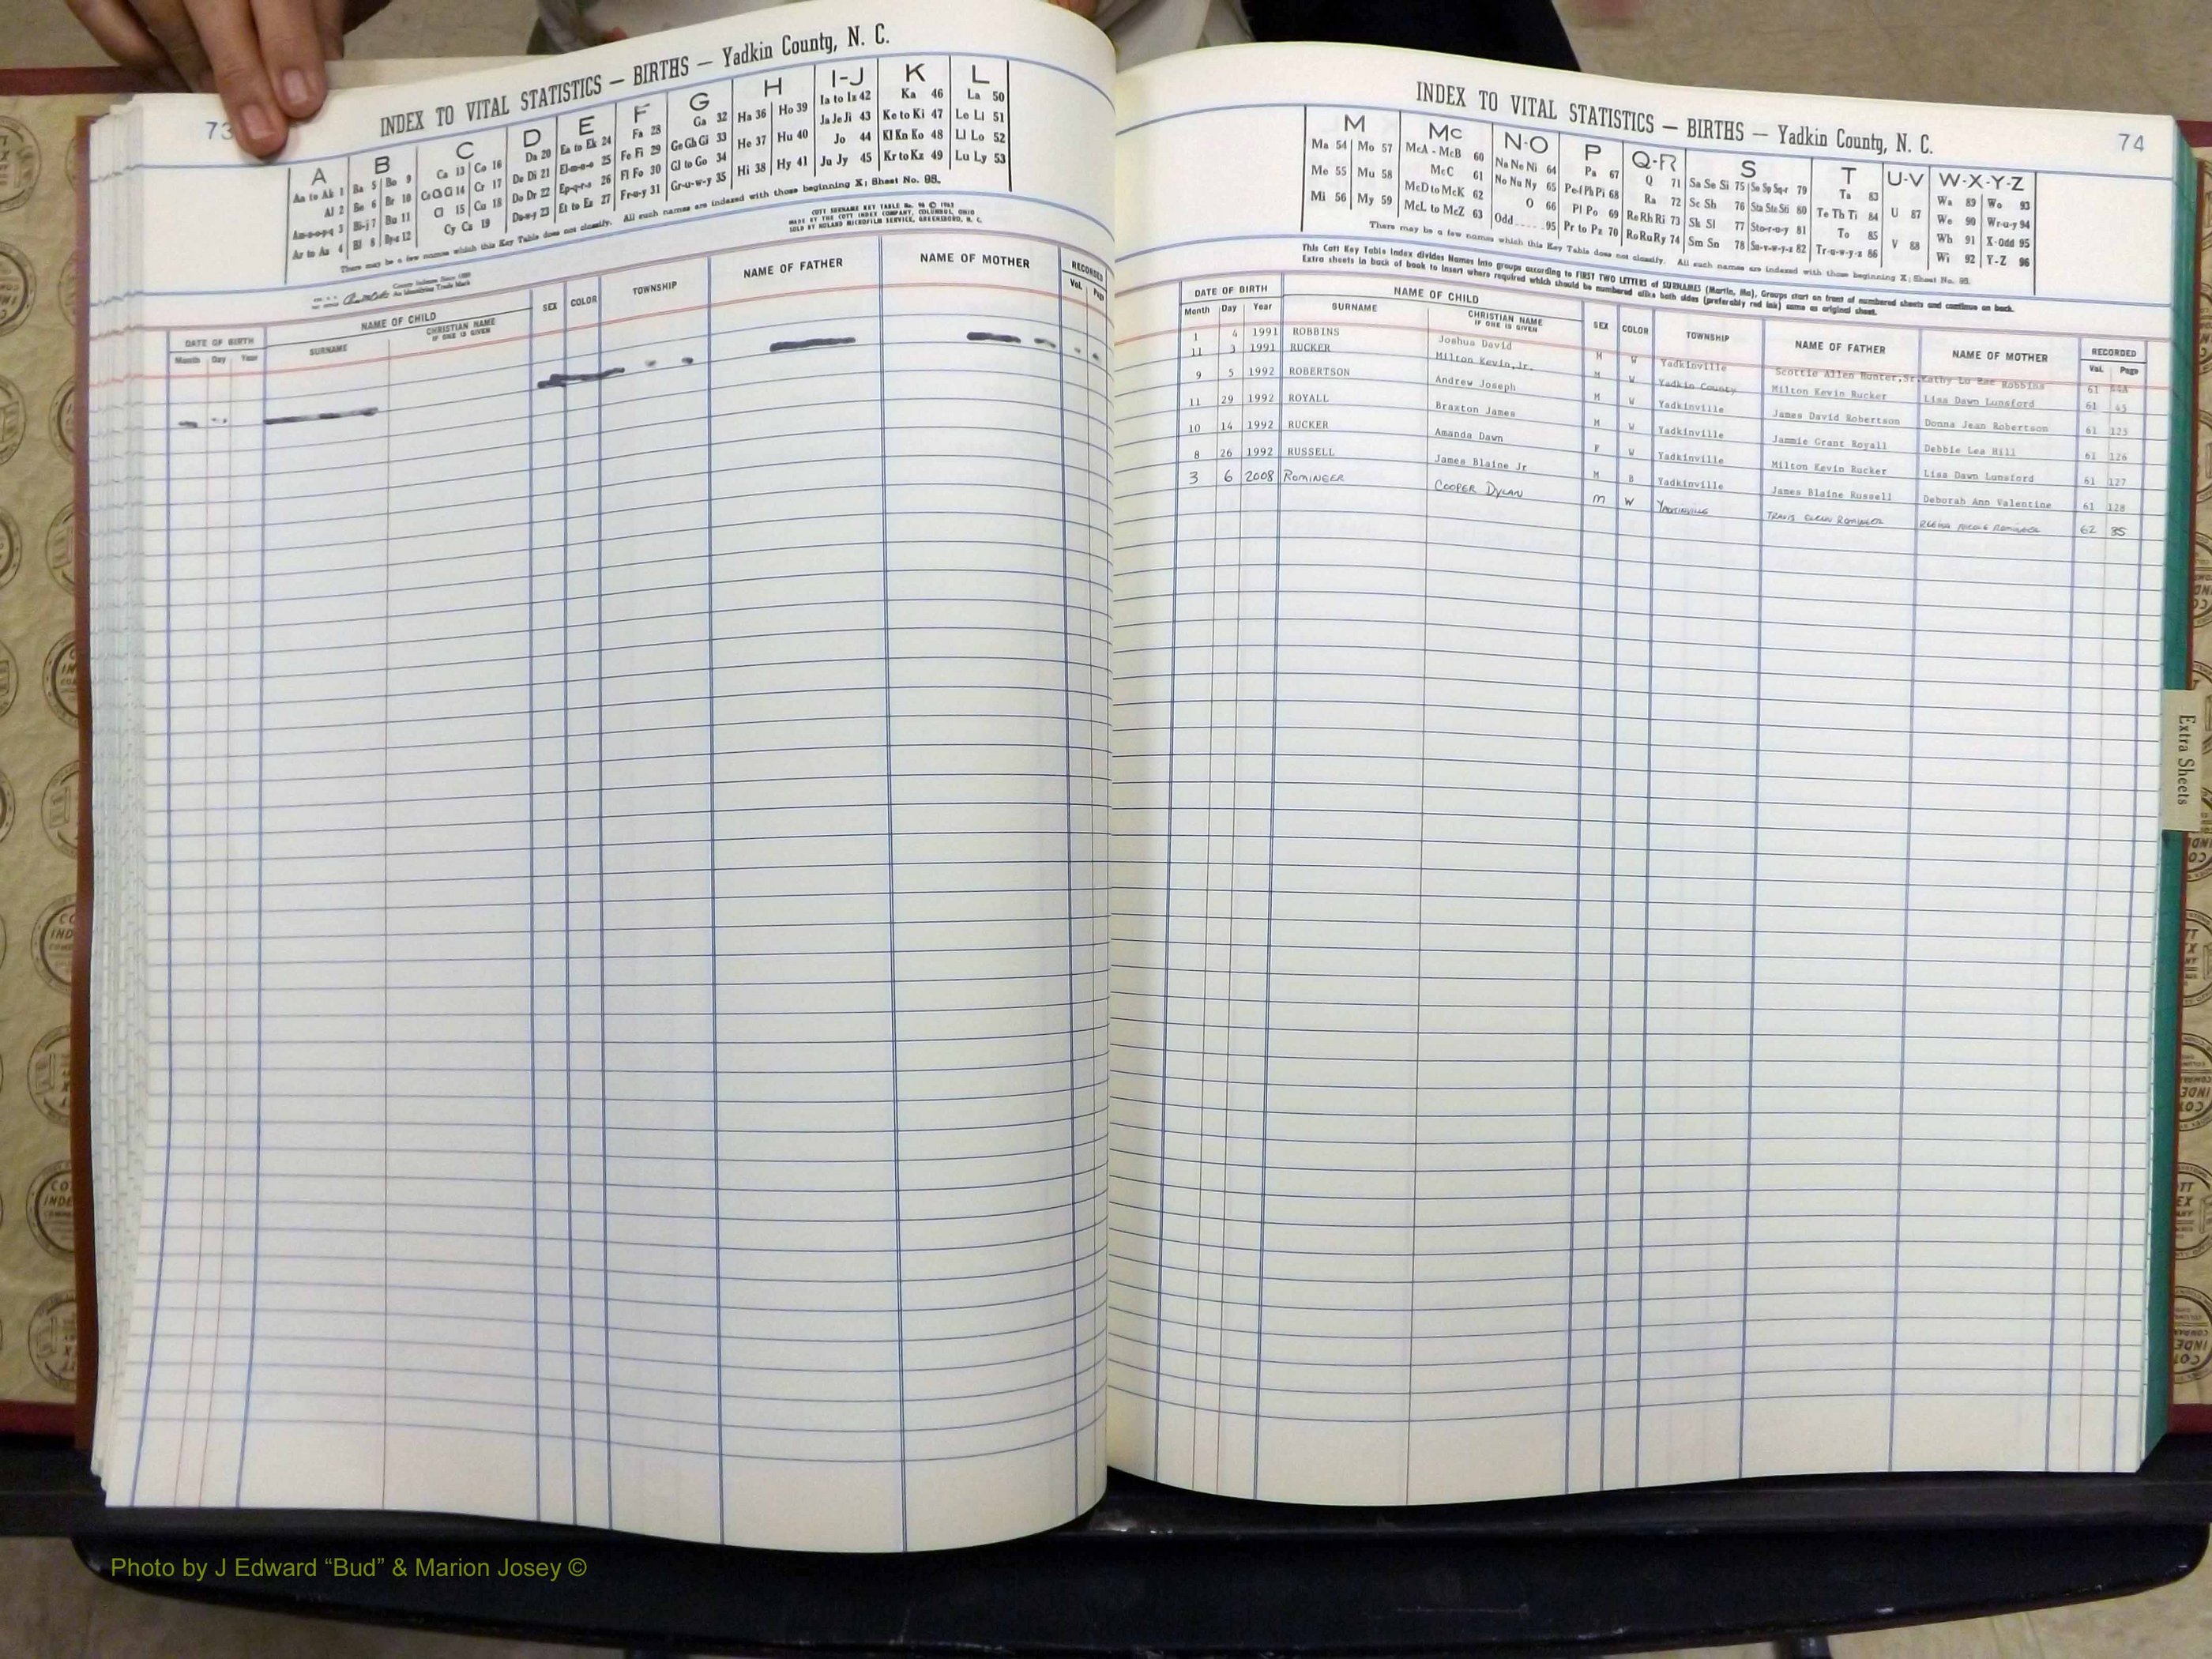 73
INDEX TO VITAL STATISTICS — BIRTHS — Yadkin County, N. C.
A B C D E F G H I-J K L
Aa to Ak 1 Ba 5 Bo 9 Ca 13 Co 16 Da 20 Ea to Ek 24 Fa 28 Ga 32 Ha 36 Ho 39 Ia to Iz 42 Ka 46 La 50
Al 2 Be 6 Br 10 Ce Ch Ci 14 Cr 17 De Di 21 El-m-n-o 25 Fe Fi 29 Ge Gh Gi 33 He 37 Hu 40 Ja Je Ji 43 Ke to Ki 47 Le Li 51
Am-n-o-p-q 3 Bi-j 7 Bu 11 Cl 15 Cu 18 Do Dr 22 Ep-q-r-s 26 Fl Fo 30 Gl to Go 34 Hi 38 Hy 41 Jo 44 Kl Kn Ko 48 Ll Lo 52
Ar to Az 4 Bl 8 By-z 12 Cy Cz 19 Du-w-y 23 Et to Ez 27 Fr-u-y 31 Gr-u-w-y 35 Ju Jy 45 Kr to Kz 49 Lu Ly 53
There may be a few names which this Key Table does not classify. All such names are indexed with those beginning X; Sheet No. 95.
COTT SURNAME KEY TABLE No. 96 © 1963
MADE BY THE COTT INDEX COMPANY, COLUMBUS, OHIO
SOLD BY ROLAND MICROFILM SERVICE, GREENSBORO, N. C.
County Indexes Since 1888
An Identifying Trade Mark
DATE OF BIRTH NAME OF CHILD SEX COLOR TOWNSHIP NAME OF FATHER NAME OF MOTHER RECORDED
Month Day Year SURNAME CHRISTIAN NAME IF ONE IS GIVEN Vol. Page
74
INDEX TO VITAL STATISTICS — BIRTHS — Yadkin County, N. C.
M Mc N-O P Q-R S T U-V W-X-Y-Z
Ma 54 Mo 57 McA - McB 60 Na Ne Ni 64 Pa 67 Q 71 Sa Se Si 75 So Sp Sq-r 79 Ta 83 U 87 Wa 89 Wo 93
Me 55 Mu 58 McC 61 No Nu Ny 65 Pe-f Ph Pi 68 Ra 72 Sc Sh 76 Sta Ste Sti 80 Te Th Ti 84 V 88 We 90 Wr-u-y 94
Mi 56 My 59 McD to McK 62 O 66 Pl Po 69 Re Rh Ri 73 Sk Sl 77 Sto-r-u-y 81 To 85 Wh 91 X-Odd 95
McL to McZ 63 Odd 95 Pr to Pz 70 Ro Ru Ry 74 Sm Sn 78 Su-v-w-y-z 82 Tr-u-w-y-z 86 Wi 92 Y-Z 96
There may be a few names which this Key Table does not classify. All such names are indexed with those beginning X; Sheet No. 95.
This Cott Key Table Index divides Names into groups according to FIRST TWO LETTERS of SURNAMES (Martin, Ma), Groups start on front of numbered sheets and continue on back.
Extra sheets in back of book to insert where required which should be numbered alike both sides (preferably red ink) same as original sheet.
DATE OF BIRTH NAME OF CHILD SEX COLOR TOWNSHIP NAME OF FATHER NAME OF MOTHER RECORDED
Month Day Year SURNAME CHRISTIAN NAME IF ONE IS GIVEN Vol. Page
1 4 1991 ROBBINS Joshua David M W Yadkinville Scottie Allen Hunter,Sr. Kathy Lu Rae Robbins 61 44A
11 3 1991 RUCKER Milton Kevin,Jr. M W Yadkin County Milton Kevin Rucker Lisa Dawn Lunsford 61 45
9 5 1992 ROBERTSON Andrew Joseph M W Yadkinville James David Robertson Donna Jean Robertson 61 125
11 29 1992 ROYALL Braxton James M W Yadkinville Jammie Grant Royall Debbie Lea Hill 61 126
10 14 1992 RUCKER Amanda Dawn F W Yadkinville Milton Kevin Rucker Lisa Dawn Lunsford 61 127
8 26 1992 RUSSELL James Blaine Jr M B Yadkinville James Blaine Russell Deborah Ann Valentine 61 128
3 6 2008 ROMINGER COOPER DYLAN M W YADKINVILLE TRAVIS GLENN ROMINGER REGINA NICOLE ROMINGER 62 85
Extra Sheets
Photo by J Edward “Bud” & Marion Josey ©